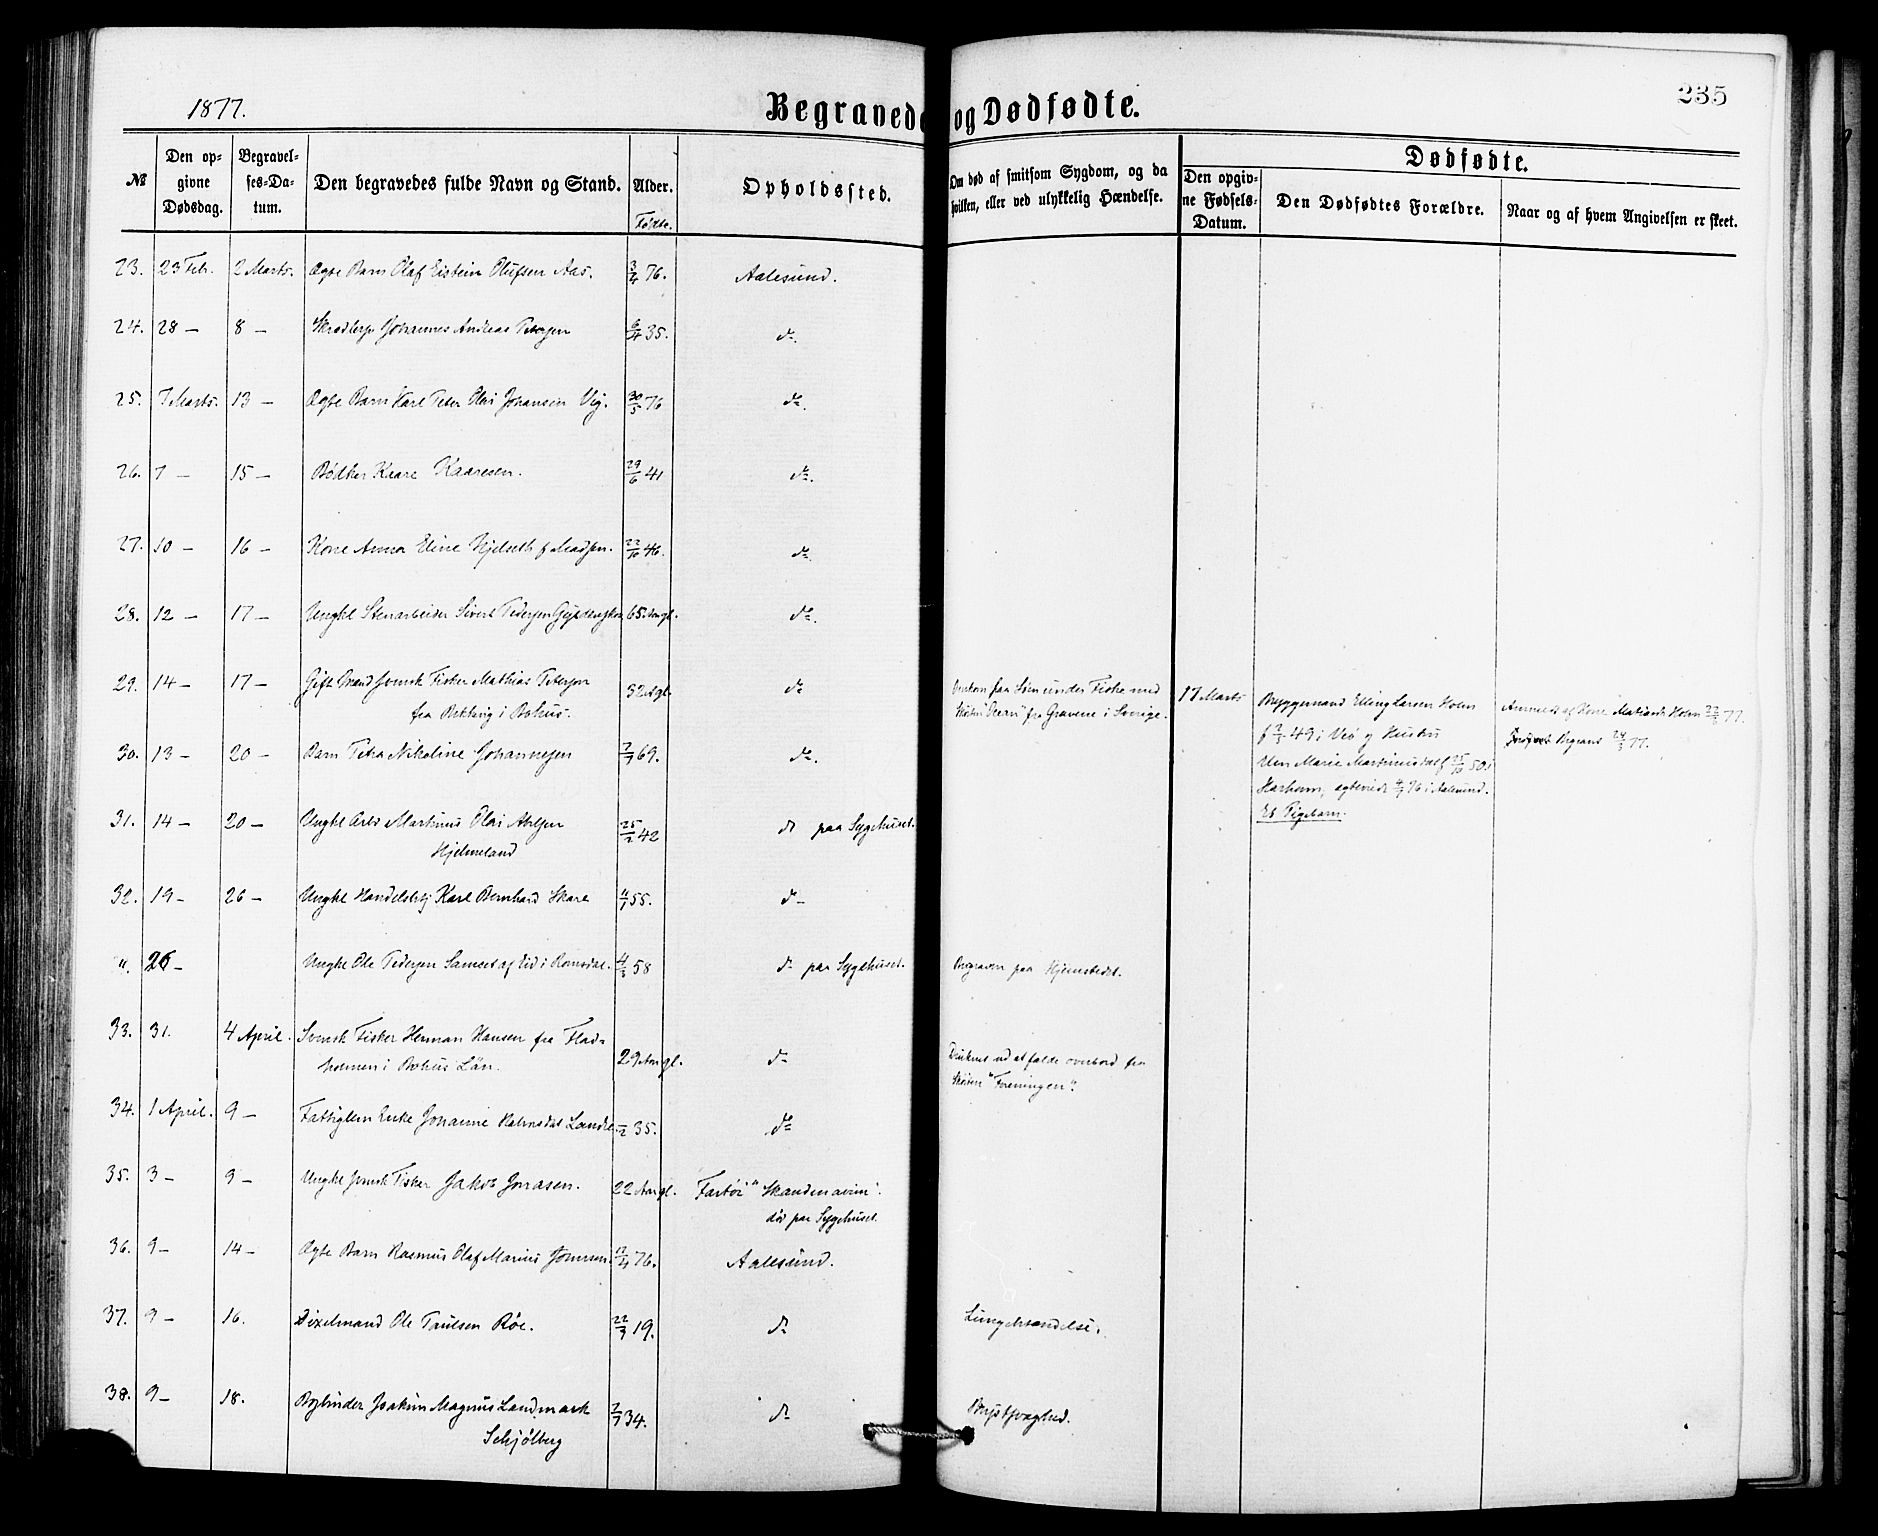 1877.
Begravede og Dødfødte.
235
№
Den op-
givne
Dødsdag.
Begravel-
ses-Da-
tum.
Den begravedes fulde Navn og Stand.
Alder.
Fødte.
Opholdssted.
Om død af smitsom Sygdom, og da
hvilken, eller ved ulykkelig Hændelse.
Dødfødte.
Den opgiv-
ne Fødsels-
Datum.
Den Dødfødtes Forældre.
Naar og af hvem Angivelsen er skeet.
23. 23 Feb. 2 Marts. Ægte Barn Olaf Eistein Olufsen Aas. 3/4 76. Aalesund.
24. 28 — 8 — Johannes Andreas Petersen 6/4 35. do.
25. 7 Marts. 13 — Ægte Barn Karl Peter Olai Johansen Vig. 30/5 76 do.
26. 7 — 15 — Bødker Kaare Kaaresen. 29/6 41 do.
27. 10 — 16 — Kone Anna Eline Hjelseth f. Madsen. 22/10 46. do.
28. 12 — 17 — Ungkl Stenarbeider Sivert Pedersen 65 Aar gl. do.
29. 14 — 17 — Gift Mand svensk Fisker Mathias Petersen 52 A gl. do
fra i Bohus.
Omkom paa Søen under Fiske med
Skøiten "Ocean" fra Gravene i Sverige.
17 Marts
Byggemand Elling Larsen Holm
f 2/3 49 i Veø og Hustru
Elen Marie Martinusdatter f 25/10 50 i
Harham, ægteviede 76 i Aalesund.
Et Pigebarn.
Anmeldt af Kone Holm 22/3 77.
Begravet 24/3 77.
30. 13 — 20 — Barn Petra Nikoline Johannesen 7/7 69. do.
31. 14 — 20 — Ungkl Arb Martinus Olai
Hjelmeland 42 do paa Sygehuset.
32. 19 — 26 — Ungkl Handelsbetj Karl Bernhard Skare 55. do
". 26 — Ungkl Ole Pedersen Samset af Eid i Romsdal. 4/3 58 do paa Sygehuset. Begraven paa Hjemstedet.
33. 31. 4 April. Svensk Fisker Herman Hansen fra Flad-
holmen i Bohus Län. 29 Aar gl. do
Druknet ved at falde overbord fra
Skøiten "Foreningen".
34. 1 April. 9 — Fattiglem Enke Johanne 35. do
35. 3 — 9 — Ungkl svensk Fisker Jakob Jonasen. 22 Aar gl. Fartøi "Skandinavien".
død paa Sygehuset.
36. 9 — 14 — Ægte Barn Rasmus Olaf Marius 76. Aalesund.
37. 9 — 16. Ole Paulsen Røe. 22/7 19. do Lungebetændelse.
38. 9 — 18. Bogbinder Joakim Magnus Landmark
Schjølberg 7/7 34. do Brystsvaghed.